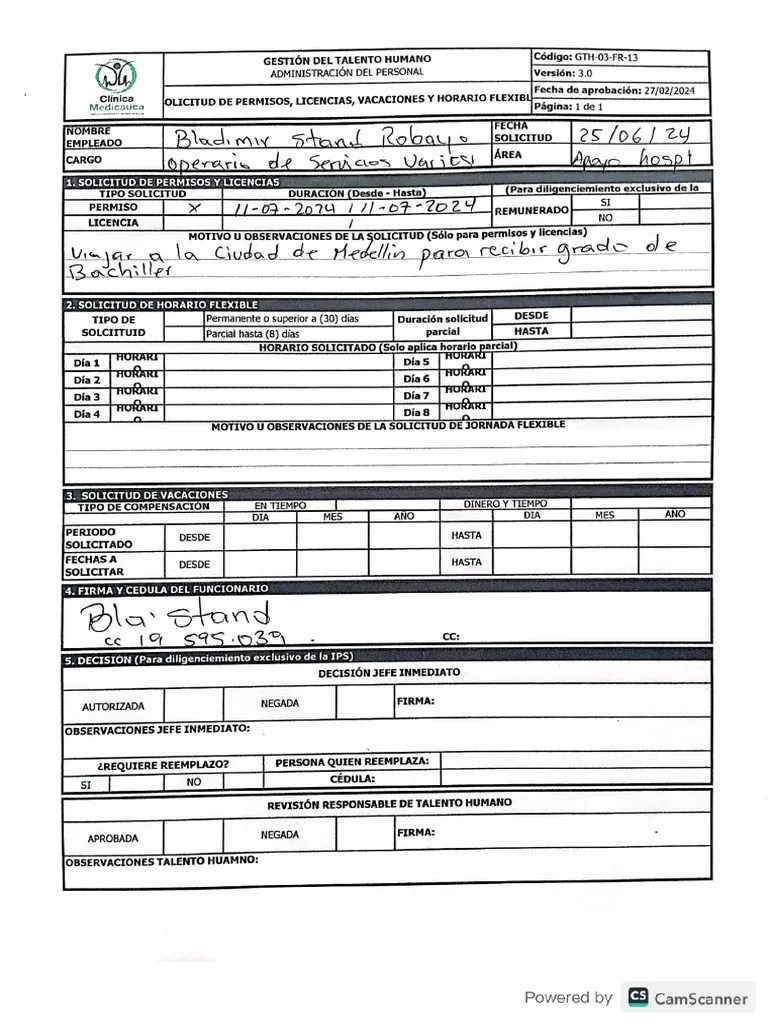 GESTIÓN DEL TALENTO HUMANO
ADMINISTRACIÓN DEL PERSONAL
OLICITUD DE PERMISOS, LICENCIAS, VACACIONES Y HORARIO FLEXIBL
Código: GTH-03-FR-13
Versión: 3.0
Fecha de aprobación: 27/02/2024
Página: 1 de 1
Clínica
Medicauca
NOMBRE EMPLEADO Bladimir Stand Robayo FECHA SOLICITUD 25/06/24
CARGO Operario de Servicios Varios ÁREA Apoyo hospt
1. SOLICITUD DE PERMISOS Y LICENCIAS
TIPO SOLICITUD DURACIÓN (Desde - Hasta) (Para diligenciemiento exclusivo de la
PERMISO X 11-07-2024 / 11-07-2024 REMUNERADO SI
LICENCIA / NO
MOTIVO U OBSERVACIONES DE LA SOLICITUD (Sólo para permisos y licencias)
Viajar a la Ciudad de Medellín para recibir grado de
Bachiller
2. SOLICITUD DE HORARIO FLEXIBLE
TIPO DE SOLCIITUID Permanente o superior a (30) días Duración solicitud parcial DESDE
Parcial hasta (8) días HASTA
HORARIO SOLICITADO (Solo aplica horario parcial)
Día 1 HORARIO Día 5 HORARIO
Día 2 HORARIO Día 6 HORARIO
Día 3 HORARIO Día 7 HORARIO
Día 4 HORARIO Día 8 HORARIO
MOTIVO U OBSERVACIONES DE LA SOLICITUD DE JORNADA FLEXIBLE
3. SOLICITUD DE VACACIONES
TIPO DE COMPENSACIÓN EN TIEMPO DINERO Y TIEMPO
DIA MES AÑO DIA MES AÑO
PERIODO SOLICITADO DESDE HASTA
FECHAS A SOLICITAR DESDE HASTA
4. FIRMA Y CEDULA DEL FUNCIONARIO
Bla. Stand
cc 19 595.039 CC:
5. DECISIÓN (Para diligenciemiento exclusivo de la IPS)
DECISIÓN JEFE INMEDIATO
AUTORIZADA NEGADA FIRMA:
OBSERVACIONES JEFE INMEDIATO:
¿REQUIERE REEMPLAZO? PERSONA QUIEN REEMPLAZA:
SI NO CÉDULA:
REVISIÓN RESPONSABLE DE TALENTO HUMANO
APROBADA NEGADA FIRMA:
OBSERVACIONES TALENTO HUAMNO:
Powered by CS CamScanner